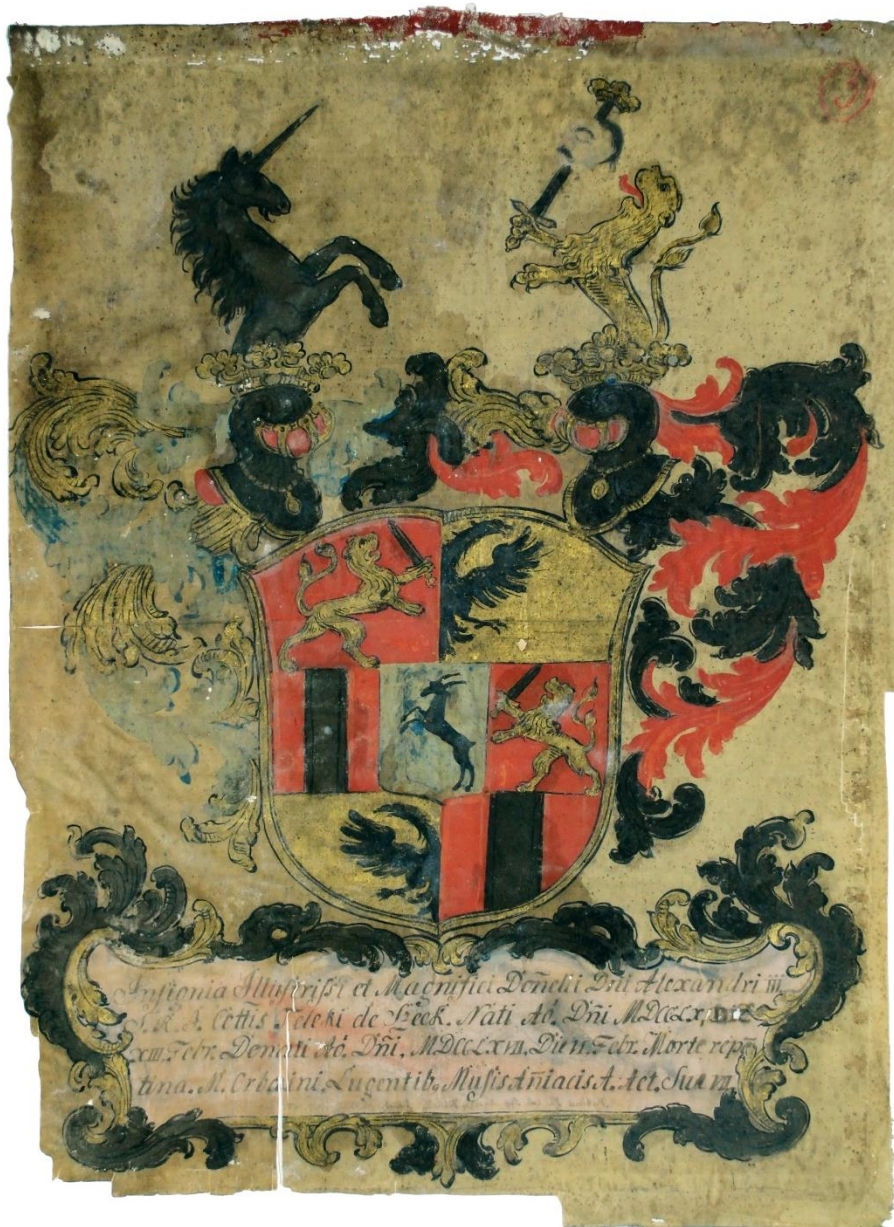 3
Insignia Illustrissi et Magnifici Doñelii Dñi Alexandri III
S. R. I. Cottis Teleki de Szék. Nati Aó. Dñi MDCCLX, DIE
XIII. Febr. Denati Aó. Dñi. MDCCLXVII. Die Febr. Morte repen̄
tina. M. Orbaini. Lugentib, Musis A. Aet. Suæ VII